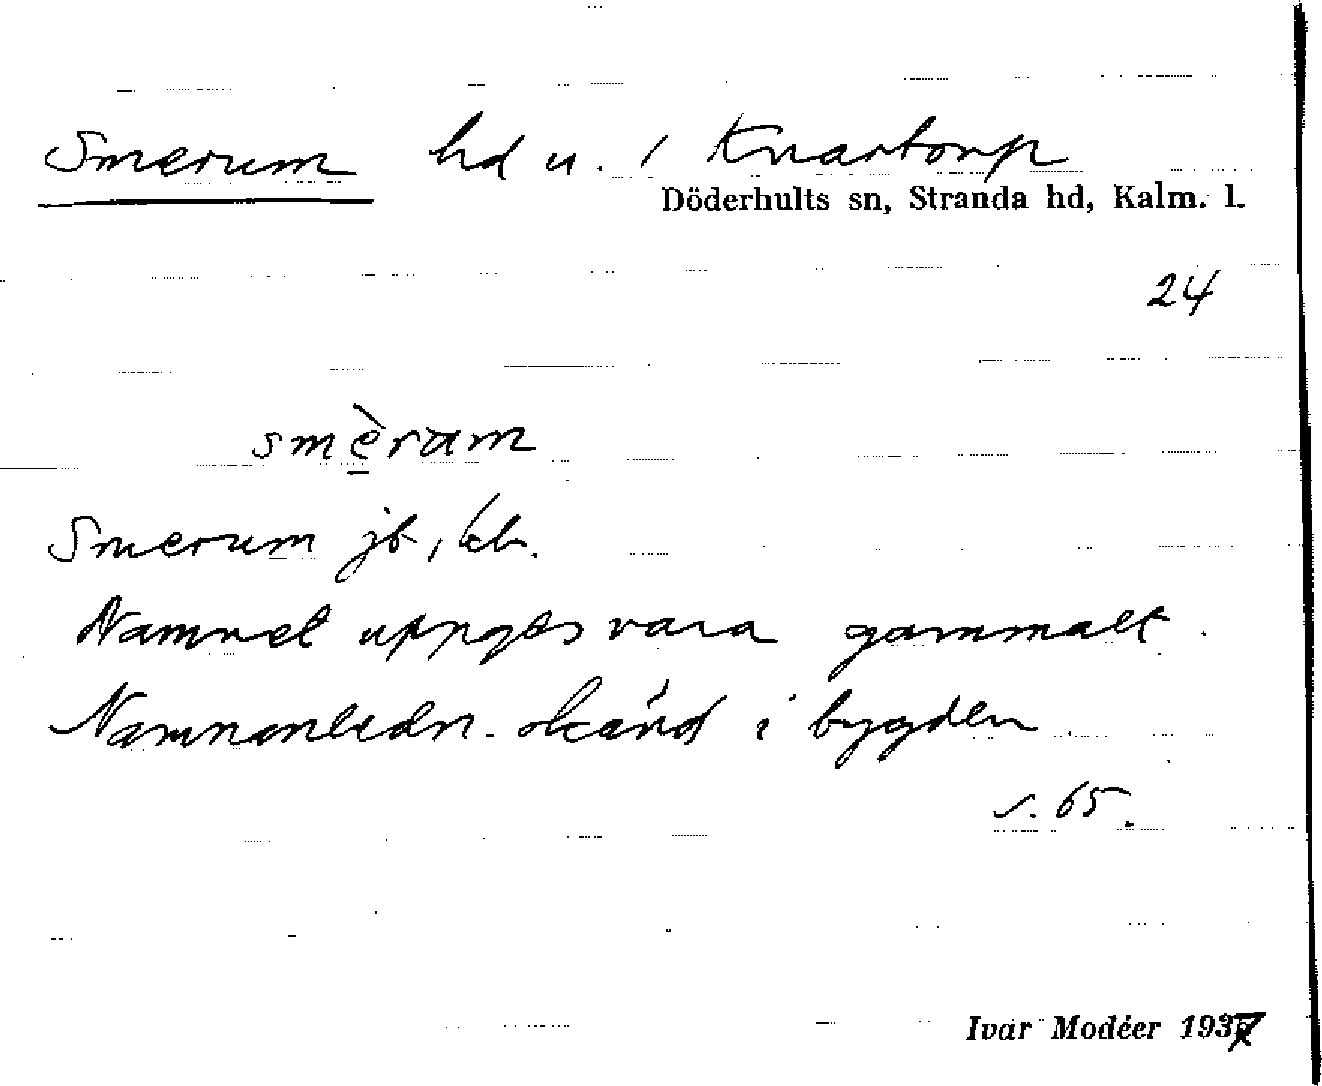 Smerum hd u. / Knartorp
Döderhults sn, Stranda hd, Kalm. l.
24
smèram
Smerum jb, kb.
Namnet uppges vara gammalt.
Namnanledn. okänd i bygden
s. 65.
Ivar Modéer 1937